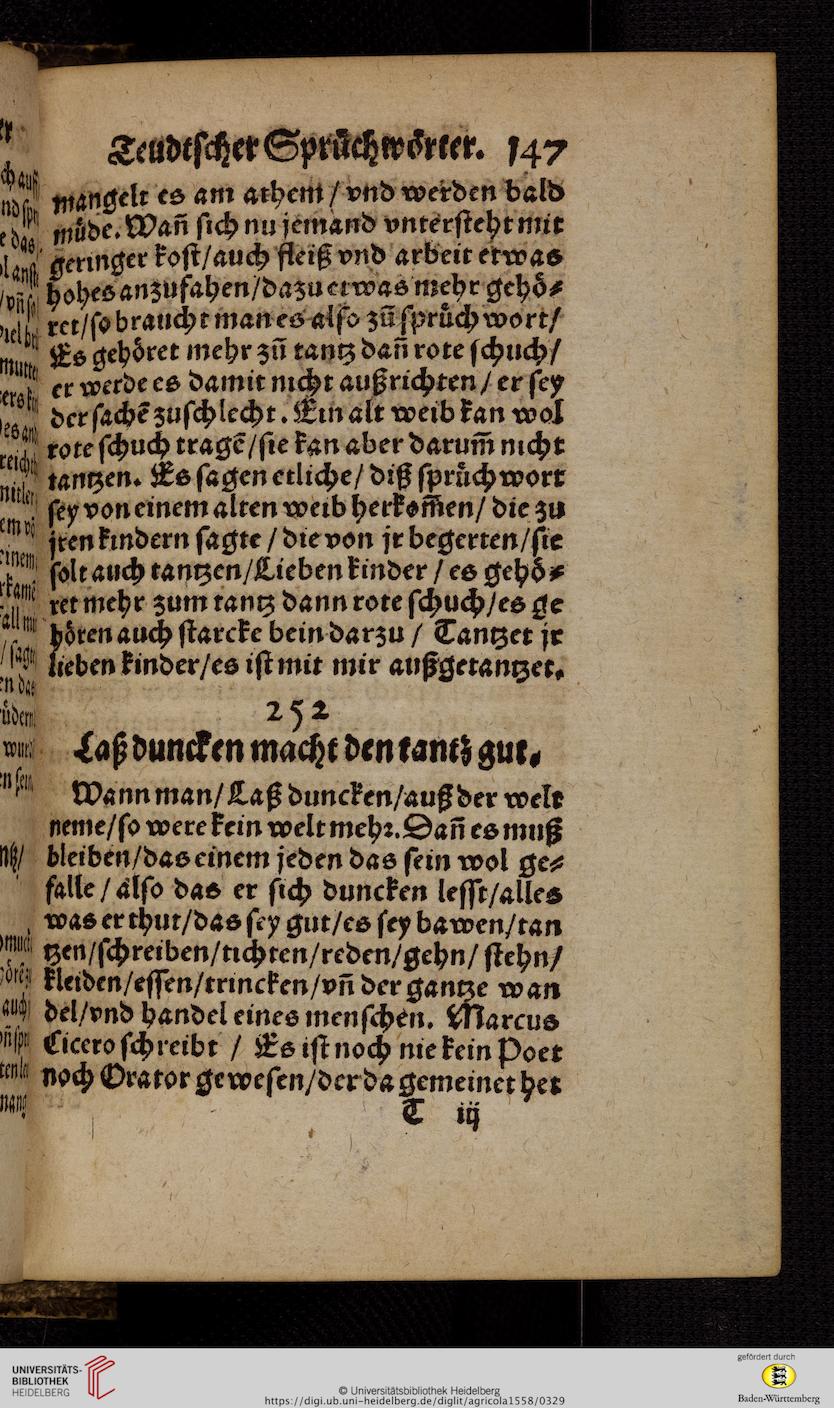 Teudtscher Sprüchwörter. 147
mangelt es am athem / vnd werden bald
müde. Wañ sich nu jemand vntersteht mit
geringer kost / auch fleiß vnd arbeit etwas
hohes anzufahen / dazu etwas mehr gehö⸗
ret / so braucht man es also zũ sprüch wort /
Es gehöret mehr zũ tantz dañ rote schuch /
er werde es damit nicht außrichten / er sey
der sachẽ zu schlecht. Ein alt weib kan wol
rote schuch tragẽ / sie kan aber darum̃ nicht
tantzen. Es sagen etliche / diß sprüch wort
sey von einem alten weib herkom̃en / die zu
jren kindern sagte / die von jr begerten / sie
solt auch tantzen / Lieben kinder / es gehö⸗
ret mehr zum tantz dann rote schuch / es ge
hören auch starcke bein darzu / Tantzet jr
lieben kinder / es ist mit mir außgetantzet.
252
Laß duncken macht den tantz gut.
Wann man / Laß duncken / auß der welt
neme / so were kein welt mehr. Dañ es muß
bleiben / das einem jeden das sein wol ge⸗
falle / also das er sich duncken lesst / alles
was er thut / das sey gut / es sey bawen / tan
tzen / schreiben / tichten / reden / gehn / stehn /
kleiden / essen / trincken / vñ der gantze wan
del / vnd handel eines menschen. Marcus
Cicero schreibt / Es ist noch nie kein Poet
noch Orator gewesen / der da gemeinet het
T iij
UNIVERSITÄTS-
BIBLIOTHEK
HEIDELBERG
© Universitätsbibliothek Heidelberg
https://digi.ub.uni-heidelberg.de/diglit/agricola1558/0329
gefördert durch
Baden-Württemberg